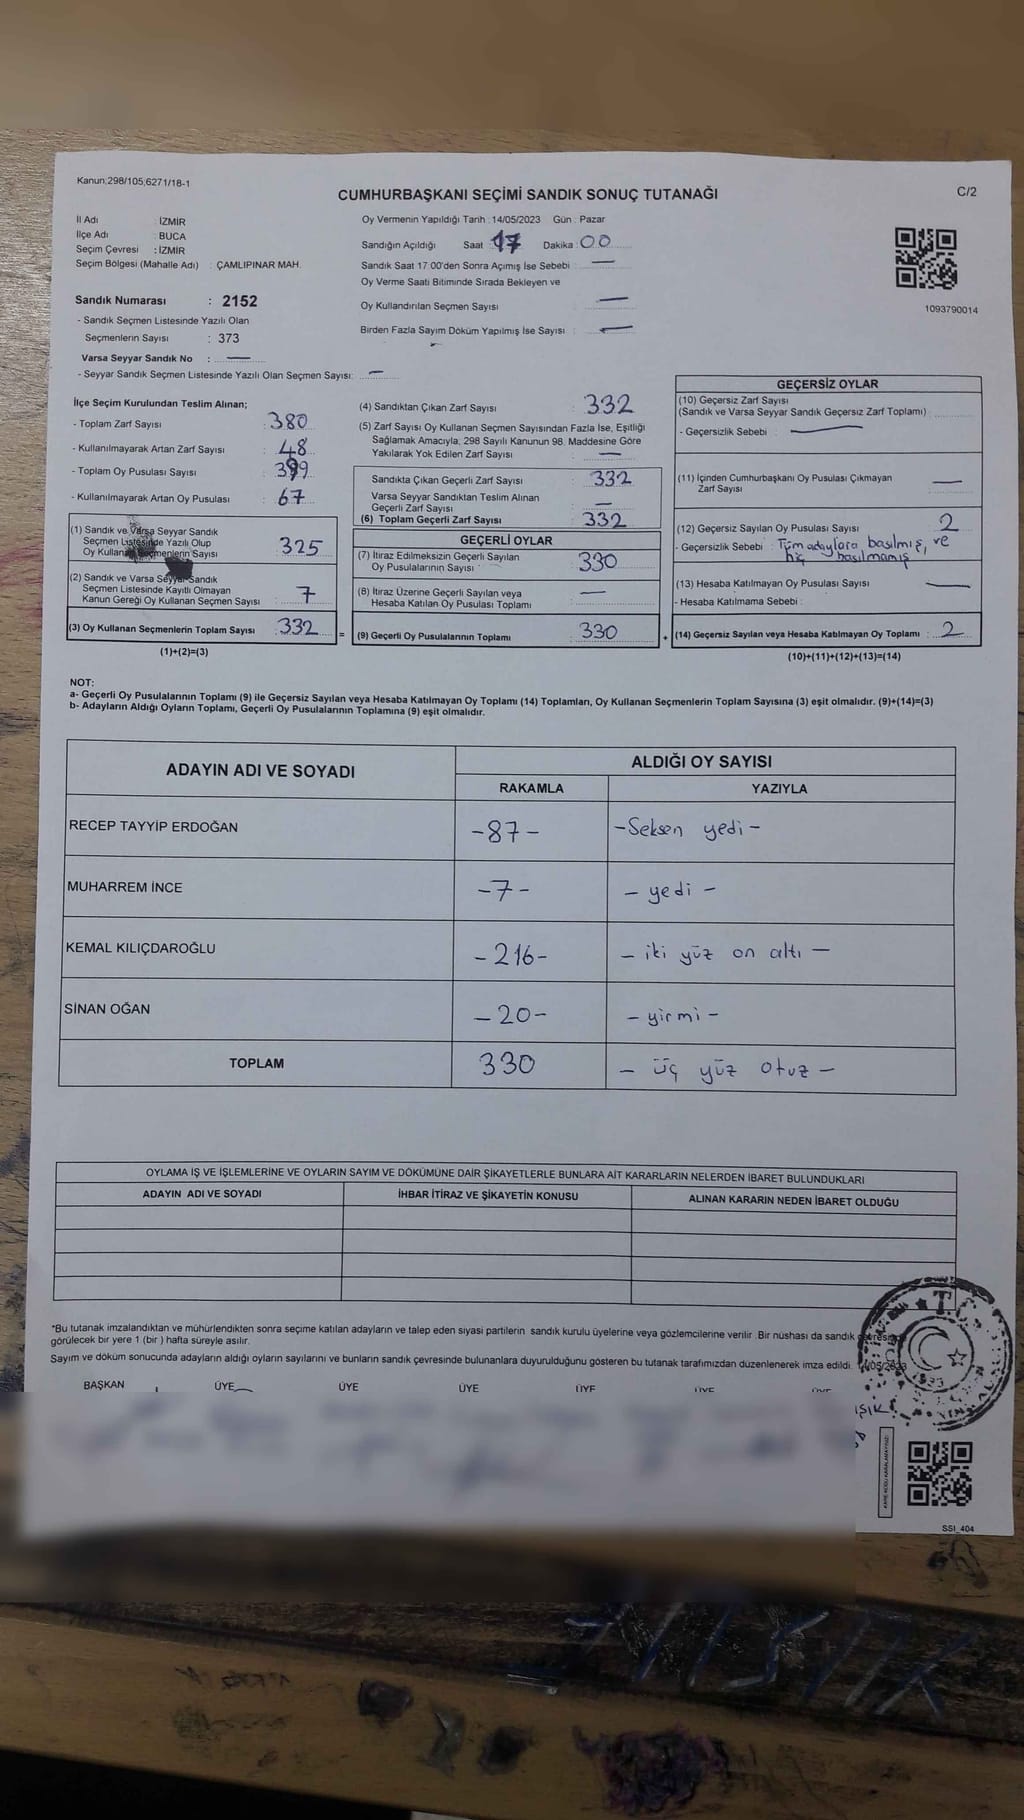 Kanun;298/105;6271/18-1
CUMHURBAŞKANI SEÇİMİ SANDIK SONUÇ TUTANAĞI
C/2
İl Adı : İZMİR
İlçe Adı : BUCA
Seçim Çevresi : İZMİR
Seçim Bölgesi (Mahalle Adı) : ÇAMLIPINAR MAH.
Oy Vermenin Yapıldığı Tarih : 14/05/2023 Gün : Pazar
Sandığın Açıldığı Saat : 17 Dakika : 00
Sandık Saat 17:00'den Sonra Açımış İse Sebebi : —
Oy Verme Saati Bitiminde Sırada Bekleyen ve
Oy Kullandırılan Seçmen Sayısı : —
Birden Fazla Sayım Döküm Yapılmış İse Sayısı : —
1093790014
Sandık Numarası : 2152
- Sandık Seçmen Listesinde Yazılı Olan
Seçmenlerin Sayısı : 373
Varsa Seyyar Sandık No : —
- Seyyar Sandık Seçmen Listesinde Yazılı Olan Seçmen Sayısı: —
İlçe Seçim Kurulundan Teslim Alınan;
- Toplam Zarf Sayısı : 380
- Kullanılmayarak Artan Zarf Sayısı : 48
- Toplam Oy Pusulası Sayısı : 399
- Kullanılmayarak Artan Oy Pusulası : 67
(1) Sandık ve Varsa Seyyar Sandık
Seçmen Listesinde Yazılı Olup
Oy Kullanan Seçmenlerin Sayısı : 325
(2) Sandık ve Varsa Seyyar Sandık
Seçmen Listesinde Kayıtlı Olmayan
Kanun Gereği Oy Kullanan Seçmen Sayısı : 7
(3) Oy Kullanan Seçmenlerin Toplam Sayısı : 332
(1)+(2)=(3)
(4) Sandıktan Çıkan Zarf Sayısı : 332
(5) Zarf Sayısı Oy Kullanan Seçmen Sayısından Fazla İse, Eşitliği
Sağlamak Amacıyla; 298 Sayılı Kanunun 98. Maddesine Göre
Yakılarak Yok Edilen Zarf Sayısı : —
Sandıkta Çıkan Geçerli Zarf Sayısı : 332
Varsa Seyyar Sandıktan Teslim Alınan
Geçerli Zarf Sayısı : —
(6) Toplam Geçerli Zarf Sayısı : 332
=
GEÇERLİ OYLAR
(7) İtiraz Edilmeksizin Geçerli Sayılan
Oy Pusulalarının Sayısı : 330
(8) İtiraz Üzerine Geçerli Sayılan veya
Hesaba Katılan Oy Pusulası Toplamı : —
(9) Geçerli Oy Pusulalarının Toplamı : 330
+
GEÇERSİZ OYLAR
(10) Geçersiz Zarf Sayısı
(Sandık ve Varsa Seyyar Sandık Geçersiz Zarf Toplamı)
- Geçersizlik Sebebi : —
(11) İçinden Cumhurbaşkanı Oy Pusulası Çıkmayan
Zarf Sayısı —
(12) Geçersiz Sayılan Oy Pusulası Sayısı : 2
- Geçersizlik Sebebi : Tüm adaylara basılmış, ve
hiç basılmamış
(13) Hesaba Katılmayan Oy Pusulası Sayısı : —
- Hesaba Katılmama Sebebi :
(14) Geçersiz Sayılan veya Hesaba Katılmayan Oy Toplamı : 2
(10)+(11)+(12)+(13)=(14)
NOT:
a- Geçerli Oy Pusulalarının Toplamı (9) ile Geçersiz Sayılan veya Hesaba Katılmayan Oy Toplamı (14) Toplamları, Oy Kullanan Seçmenlerin Toplam Sayısına (3) eşit olmalıdır. (9)+(14)=(3)
b- Adayların Aldığı Oyların Toplamı, Geçerli Oy Pusulalarının Toplamına (9) eşit olmalıdır.
ADAYIN ADI VE SOYADI
ALDIĞI OY SAYISI
RAKAMLA YAZIYLA
RECEP TAYYİP ERDOĞAN -87- -Seksen yedi-
MUHARREM İNCE -7- -yedi-
KEMAL KILIÇDAROĞLU -216- -iki yüz on altı-
SİNAN OĞAN -20- -yirmi-
TOPLAM 330 -üç yüz otuz-
OYLAMA İŞ VE İŞLEMLERİNE VE OYLARIN SAYIM VE DÖKÜMÜNE DAİR ŞİKAYETLERLE BUNLARA AİT KARARLARIN NELERDEN İBARET BULUNDUKLARI
ADAYIN ADI VE SOYADI İHBAR İTİRAZ VE ŞİKAYETİN KONUSU ALINAN KARARIN NEDEN İBARET OLDUĞU
*Bu tutanak imzalandıktan ve mühürlendikten sonra seçime katılan adayların ve talep eden siyasi partilerin sandık kurulu üyelerine veya gözlemcilerine verilir. Bir nüshası da sandık çevresinde
görülecek bir yere 1 (bir ) hafta süreyle asılır.
Sayım ve döküm sonucunda adayların aldığı oyların sayılarını ve bunların sandık çevresinde bulunanlara duyurulduğunu gösteren bu tutanak tarafımızdan düzenlenerek imza edildi. 14/05/2023
BAŞKAN ÜYE ÜYE ÜYE ÜYE ÜYE ÜYE
IŞIK
SSI_404